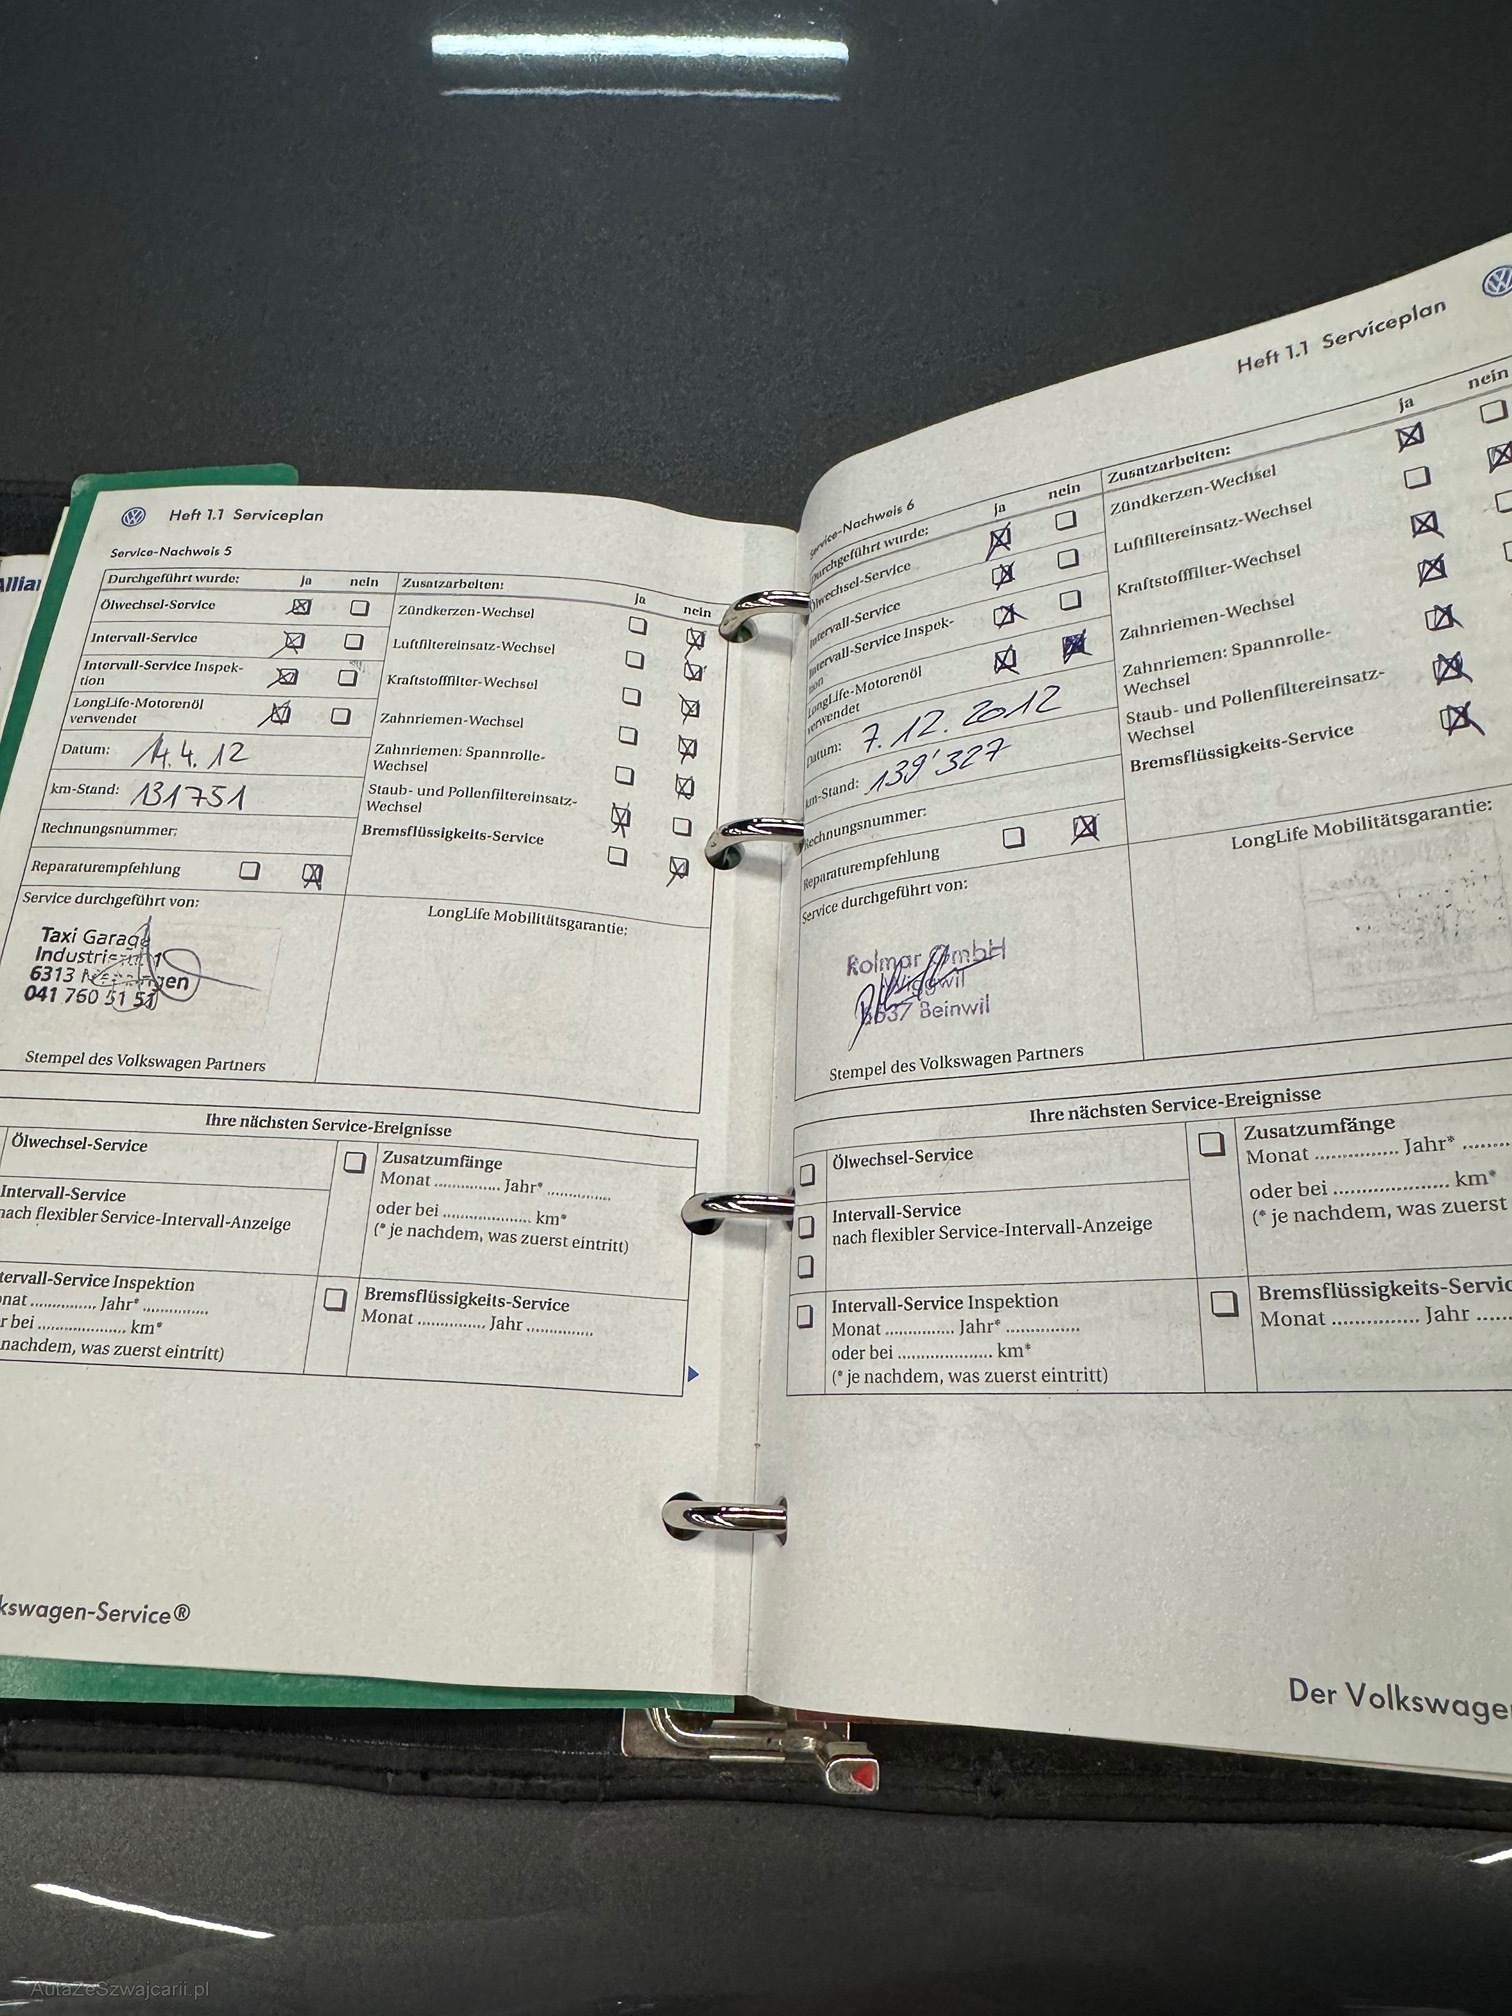 Allian
Heft 1.1 Serviceplan
Service-Nachweis 5
Durchgeführt wurde: ja nein
Ölwechsel-Service
Intervall-Service
Intervall-Service Inspek-
tion
LongLife-Motorenöl
verwendet
Datum: 14.4.12
km-Stand: 131751
Rechnungsnummer:
Reparaturempfehlung
Service durchgeführt von:
Taxi Garage
6313
041 760 51 51
Stempel des Volkswagen Partners
Zusatzarbeiten: ja nein
Zündkerzen-Wechsel
Luftfiltereinsatz-Wechsel
Kraftstofffilter-Wechsel
Zahnriemen-Wechsel
Zahnriemen: Spannrolle-
Wechsel
Staub- und Pollenfiltereinsatz-
Wechsel
Bremsflüssigkeits-Service
LongLife Mobilitätsgarantie:
Ihre nächsten Service-Ereignisse
Ölwechsel-Service
Intervall-Service
nach flexibler Service-Intervall-Anzeige
tervall-Service Inspektion
nat .............. Jahr* ..............
r bei .................... km*
nachdem, was zuerst eintritt)
Zusatzumfänge
Monat .............. Jahr* ..............
oder bei .................... km*
(* je nachdem, was zuerst eintritt)
Bremsflüssigkeits-Service
Monat .............. Jahr ..............
kswagen-Service®
Heft 1.1 Serviceplan
Service-Nachweis 6
Durchgeführt wurde: ja nein
Ölwechsel-Service
Intervall-Service
Intervall-Service Inspek-
tion
LongLife-Motorenöl
verwendet
Datum: 7.12.2012
km-Stand: 139'327
Rechnungsnummer:
Reparaturempfehlung
Service durchgeführt von:
Rolmar GmbH
Wiggwil
5637 Beinwil
Stempel des Volkswagen Partners
Zusatzarbeiten: ja nein
Zündkerzen-Wechsel
Luftfiltereinsatz-Wechsel
Kraftstofffilter-Wechsel
Zahnriemen-Wechsel
Zahnriemen: Spannrolle-
Wechsel
Staub- und Pollenfiltereinsatz-
Wechsel
Bremsflüssigkeits-Service
LongLife Mobilitätsgarantie:
Ihre nächsten Service-Ereignisse
Ölwechsel-Service
Intervall-Service
nach flexibler Service-Intervall-Anzeige
Intervall-Service Inspektion
Monat .............. Jahr* ..............
oder bei .................... km*
(* je nachdem, was zuerst eintritt)
Zusatzumfänge
Monat .............. Jahr* ........
oder bei .................... km*
(* je nachdem, was zuerst
Bremsflüssigkeits-Servic
Monat .............. Jahr ......
Der Volkswage
AutaZeSzwajcarii.pl